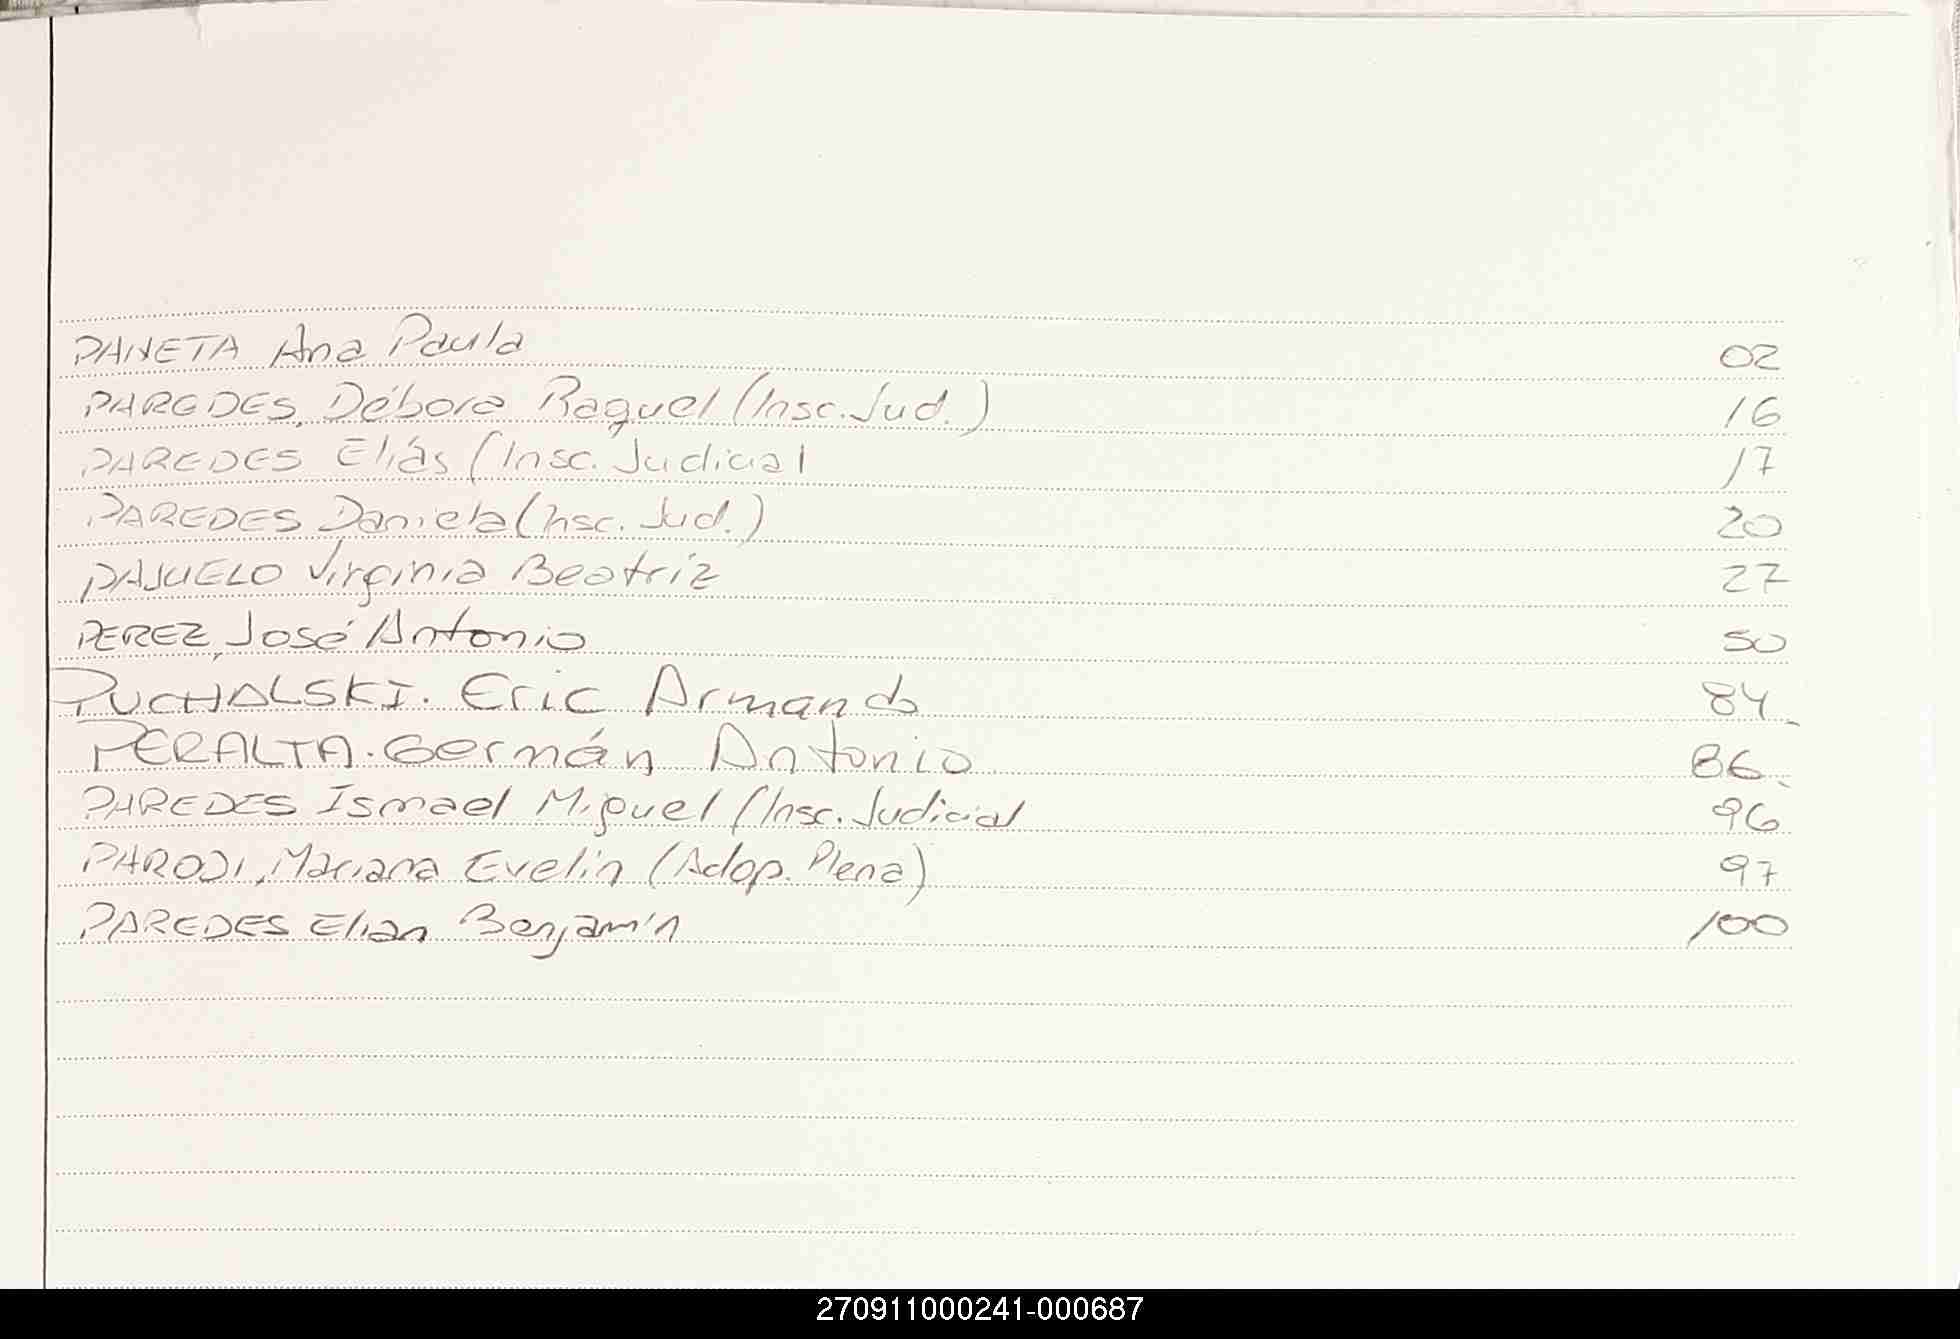 PANETA Ana Paula 02
PAREDES, Débora Raquel (Insc. Jud.) 16
PAREDES Elías (Insc. Judicial 17
PAREDES Daniela (Insc. Jud.) 20
PAJUELO Virginia Beatriz 27
PEREZ, José Antonio 50
PUCHALSKI. Eric Armando 84.
PERALTA. Germán Antonio 86.
PAREDES Ismael Miguel (Insc. Judicial 96
PARODI, Mariana Evelin (Adop. Plena) 97
PAREDES Elian Benjamín 100
270911000241-000687